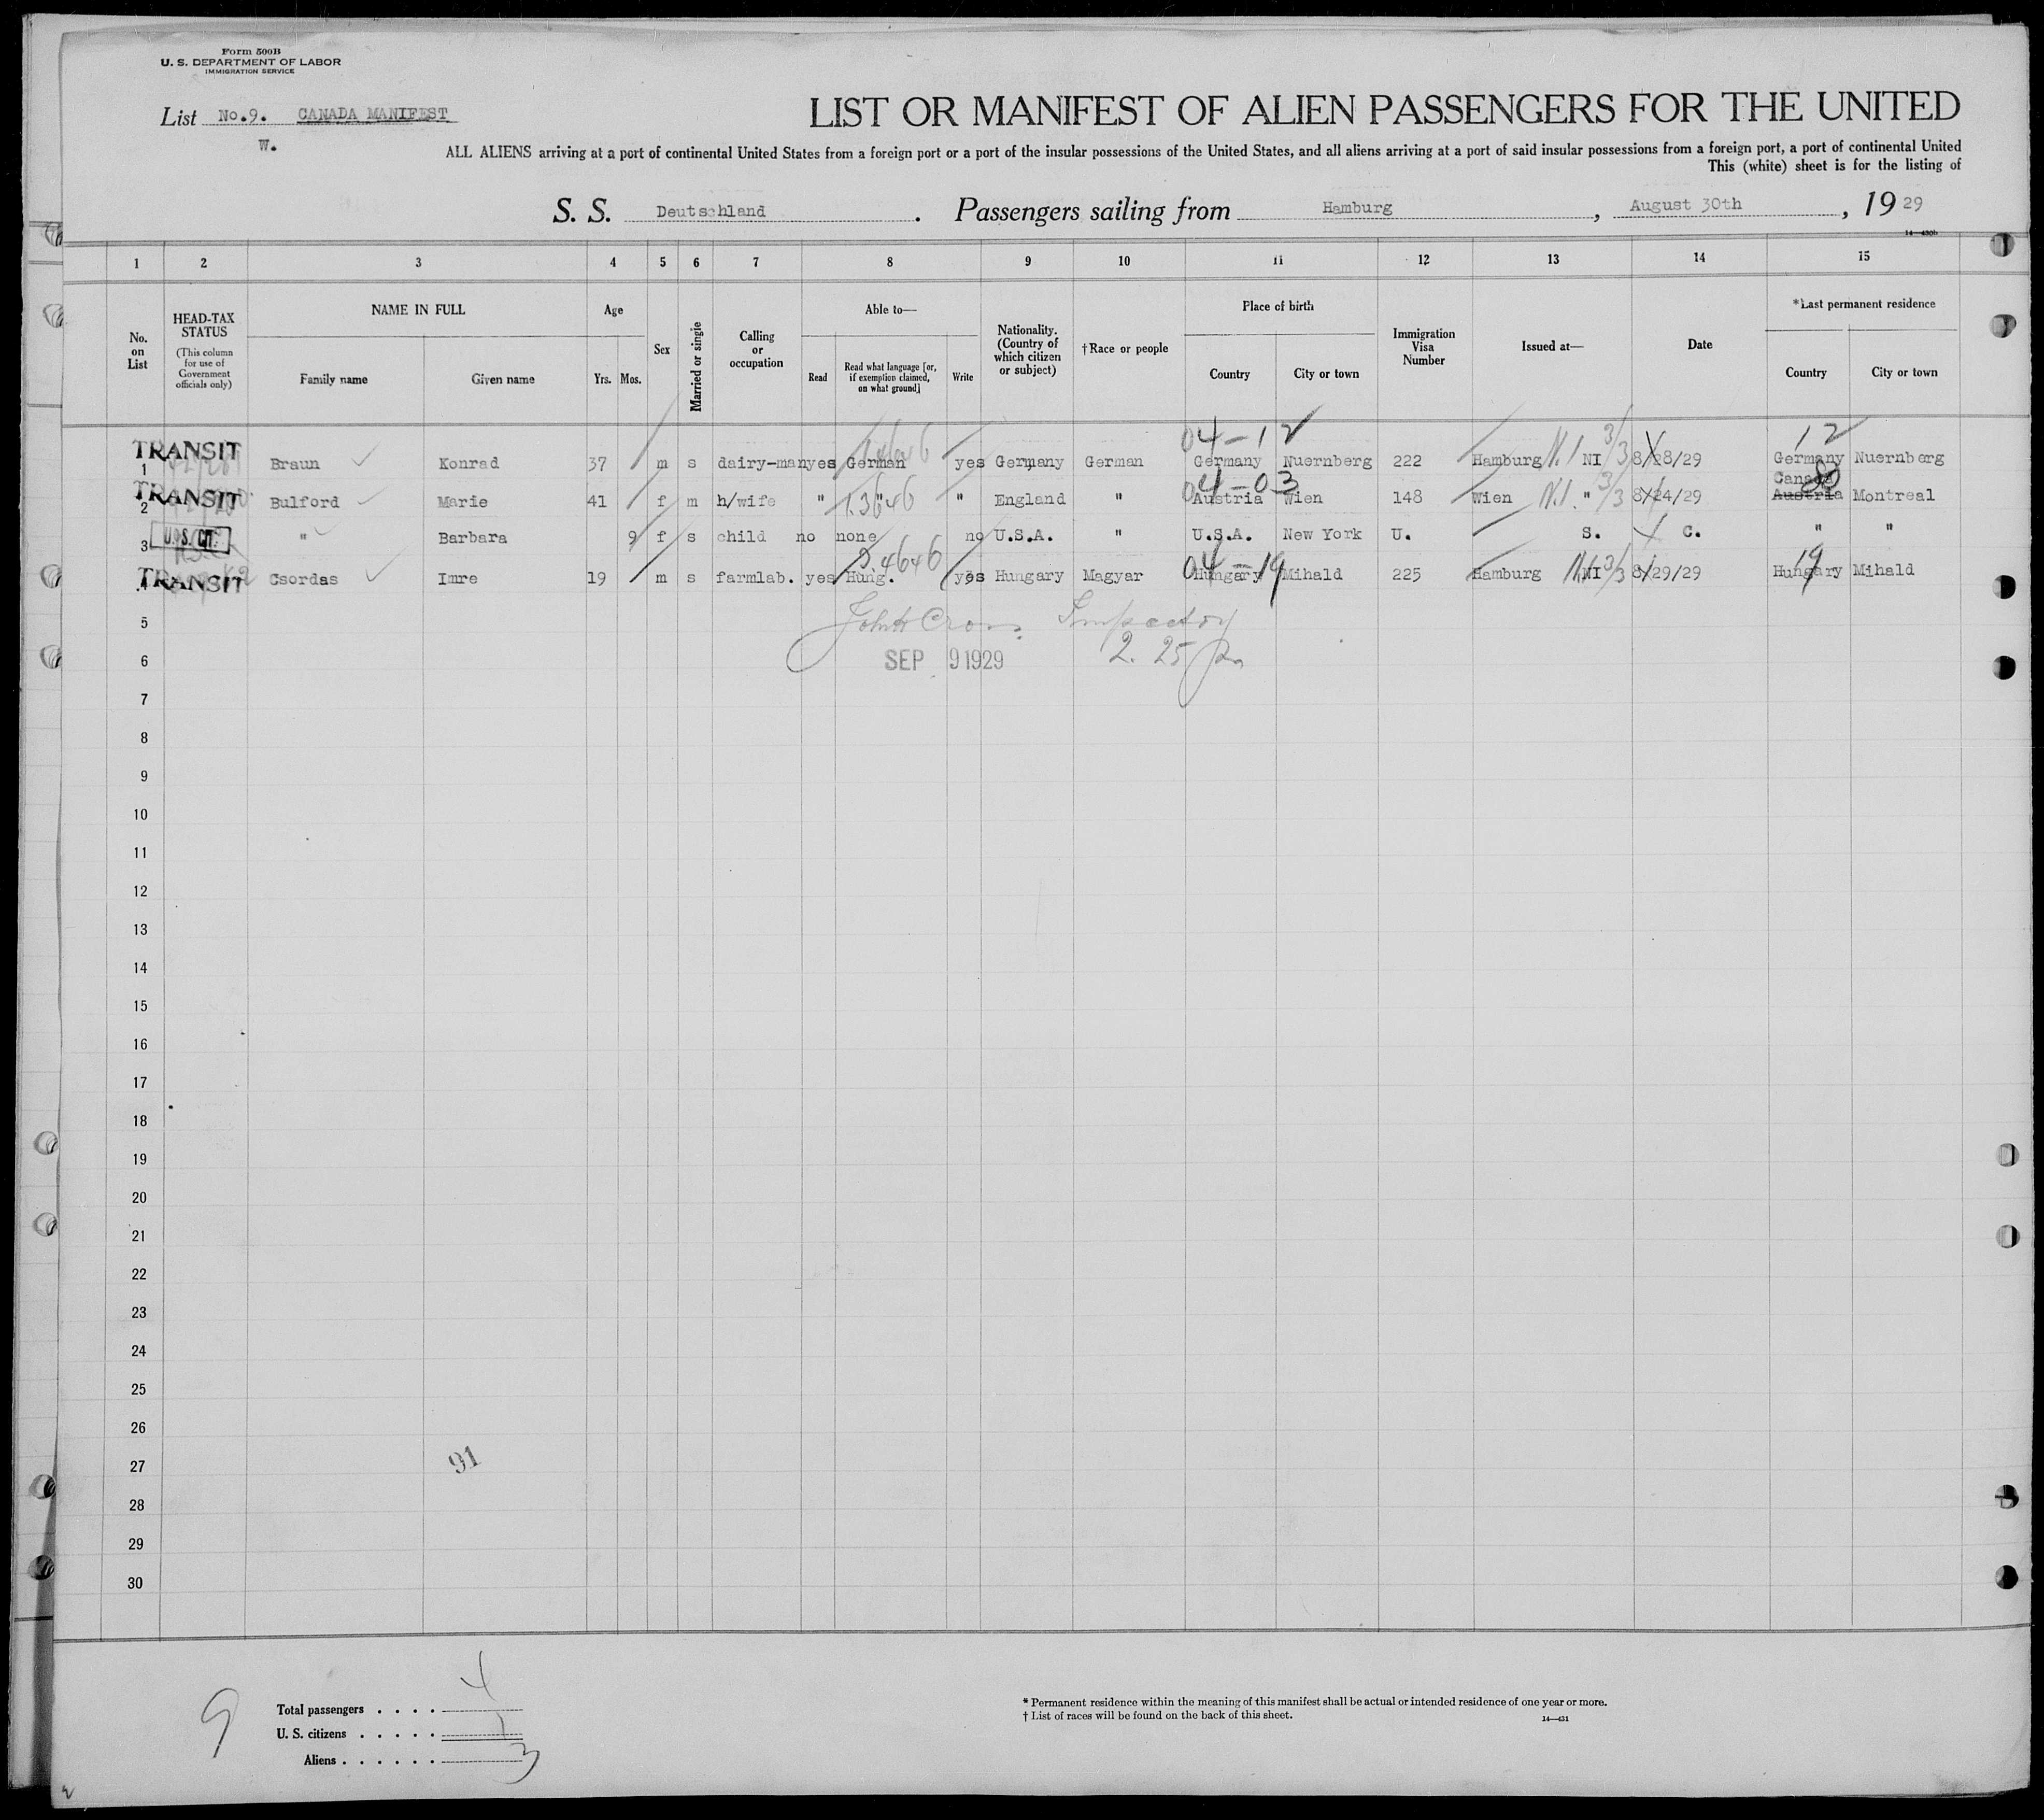 Form 500B
U. S. DEPARTMENT OF LABOR
IMMIGRATION SERVICE
List No.9. CANADA MANIFEST
W.
LIST OR MANIFEST OF ALIEN PASSENGERS FOR THE UNITED
ALL ALIENS arriving at a port of continental United States from a foreign port or a port of the insular possessions of the United States, and all aliens arriving at a port of said insular possessions from a foreign port, a port of continental United
This (white) sheet is for the listing of
S. S. Deutschland . Passengers sailing from Hamburg , August 30th , 19 29
14—430b
1 2 3 4 5 6 7 8 9 10 11 12 13 14 15
No. on List
HEAD-TAX STATUS
(This column for use of Government officials only)
NAME IN FULL
Family name Given name
Age
Yrs. Mos.
Sex
Married or single
Calling or occupation
Able to—
Read Read what language [or, if exemption claimed, on what ground] Write
Nationality. (Country of which citizen or subject)
†Race or people
Place of birth
Country City or town
Immigration Visa Number
Issued at—
Date
*Last permanent residence
Country City or town
04-12 12
TRANSIT
1 Braun Konrad 37 m s dairy-man yes German yes Germany German Germany Nuernberg 222 Hamburg N.I. NI 3/3 8/28/29 Germany Nuernberg
04-03 Canada
TRANSIT
2 Bulford Marie 41 f m h/wife " " " England " Austria Wien 148 Wien N.I. " 3/3 8/24/29 Austria Montreal
U.S. CIT.
3 " Barbara 9 f s child no none no U.S.A. " U.S.A. New York U. S. C. " "
04-19 19
TRANSIT
4 Csordas Imre 19 m s farmlab. yes Hung. yes Hungary Magyar Hungary Mihald 225 Hamburg NI 3/3 8/29/29 Hungary Mihald
5 John Inspector
6 SEP 9 1929 2. 25 pm
7
8
9
10
11
12
13
14
15
16
17
18
19
20
21
22
23
24
25
26
27 91
28
29
30
9
Total passengers . . . . 4
U. S. citizens . . . . . 1
Aliens . . . . . . 3
* Permanent residence within the meaning of this manifest shall be actual or intended residence of one year or more.
† List of races will be found on the back of this sheet.
14—431